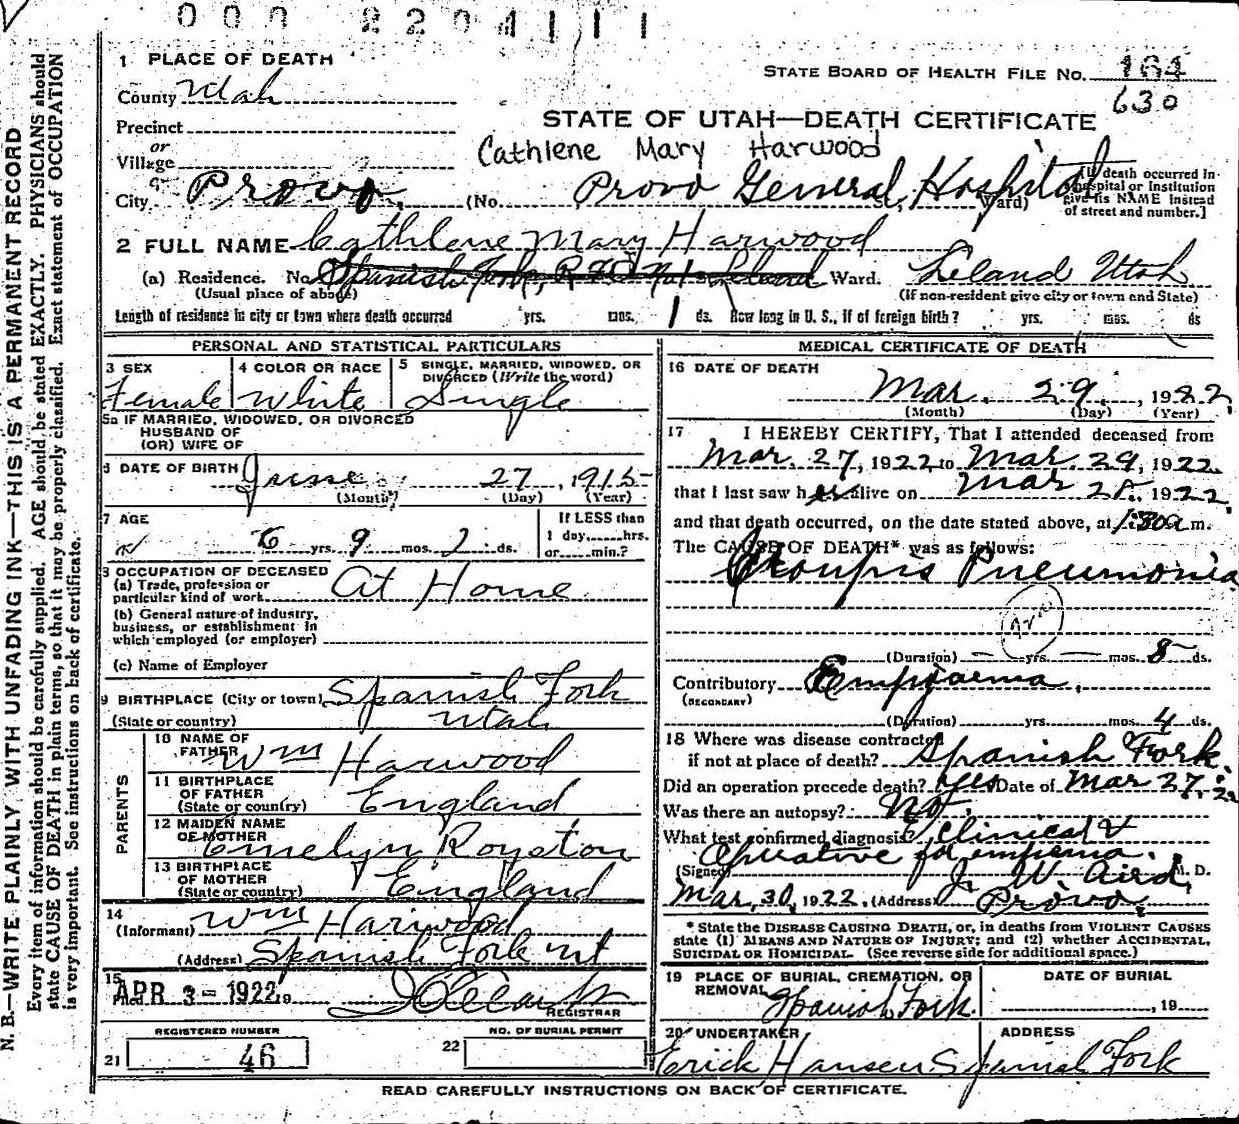 000 2204111
1 PLACE OF DEATH
STATE BOARD OF HEALTH FILE No. 164
County Utah
630
STATE OF UTAH—DEATH CERTIFICATE
Precinct
or
Village
Cathlene Mary Harwood
or
City Provo (No. Provo General Hospital Ward)
[If death occurred in
hospital or Institution
give its NAME instead
of street and number.]
2 FULL NAME Cathlene Mary Harwood
(a) Residence. No. Spanish Fork, RFD No 1 Leland Ward. Leland Utah
(Usual place of abode) (If non-resident give city or town and State)
Length of residence in city or town where death occurred yrs. mos. 1 ds. How long in U. S., if of foreign birth? yrs. mos. ds
PERSONAL AND STATISTICAL PARTICULARS
3 SEX
Female
4 COLOR OR RACE
White
5 SINGLE, MARRIED, WIDOWED, OR
DIVORCED (Write the word)
Single
5a IF MARRIED, WIDOWED, OR DIVORCED
HUSBAND OF
(OR) WIFE OF
6 DATE OF BIRTH June 27, 1915
(Month) (Day) (Year)
7 AGE
6 yrs. 9 mos. 2 ds.
If LESS than
1 day, hrs.
or min.?
8 OCCUPATION OF DECEASED
(a) Trade, profession or
particular kind of work At Home
(b) General nature of industry,
business, or establishment in
which employed (or employer)
(c) Name of Employer
9 BIRTHPLACE (City or town) Spanish Fork
(State or country) Utah
PARENTS
10 NAME OF
FATHER Wm Harwood
11 BIRTHPLACE
OF FATHER
(State or country) England
12 MAIDEN NAME
OF MOTHER Emelyn Royston
13 BIRTHPLACE
OF MOTHER
(State or country) England
14
(Informant) Wm Harwood
(Address) Spanish Fork Ut
15
Filed APR 3 - 1922, 19
REGISTRAR
REGISTERED NUMBER
21 46
NO. OF BURIAL PERMIT
22
MEDICAL CERTIFICATE OF DEATH
16 DATE OF DEATH
Mar. 29, 1922
(Month) (Day) (Year)
17 I HEREBY CERTIFY, That I attended deceased from
Mar. 27, 1922 to Mar. 29, 1922
that I last saw her alive on Mar 28, 1922,
and that death occurred, on the date stated above, at 1:30a m.
The CAUSE OF DEATH* was as follows:
Croupis Pneumonia
(Duration) — yrs. — mos. 8 ds.
Contributory Empyaema.
(SECONDARY)
(Duration) yrs. mos. 4 ds.
18 Where was disease contracted
if not at place of death? Spanish Fork.
Did an operation precede death? Yes Date of Mar 27, 22
Was there an autopsy? No.
What test confirmed diagnosis? Clinical &
Operative for empiema.
(Signed) J. W. Aird, M. D.
Mar, 30, 1922. (Address) Provo.
* State the DISEASE CAUSING DEATH, or, in deaths from VIOLENT CAUSES
state (1) MEANS AND NATURE OF INJURY; and (2) whether ACCIDENTAL,
SUICIDAL OR HOMICIDAL. (See reverse side for additional space.)
19 PLACE OF BURIAL, CREMATION, OR
REMOVAL Spanish Fork.
DATE OF BURIAL
, 19
20 UNDERTAKER
Erick Hansen
ADDRESS
Spanish Fork
READ CAREFULLY INSTRUCTIONS ON BACK OF CERTIFICATE.
N. B.—WRITE PLAINLY WITH UNFADING INK—THIS IS A PERMANENT RECORD
Every item of information should be carefully supplied. AGE should be stated EXACTLY. PHYSICIANS should
state CAUSE OF DEATH in plain terms, so that it may be properly classified. Exact statement of OCCUPATION
is very important. See instructions on back of certificate.